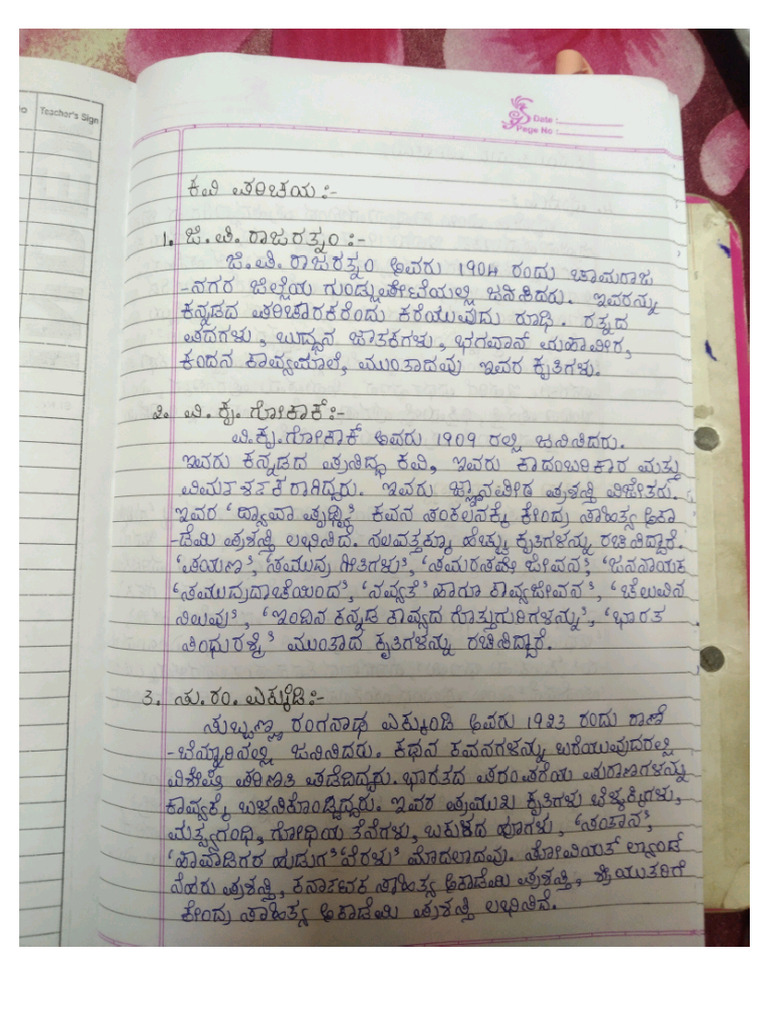 Teacher's Sign
Date :
Page No :
ಕವಿ ಪರಿಚಯ :-
1. ಜಿ. ಪಿ. ರಾಜರತ್ನಂ :-
ಜಿ. ಪಿ. ರಾಜರತ್ನಂ ಅವರು 1904 ರಂದು ಚಾಮರಾಜ
-ನಗರ ಜಿಲ್ಲೆಯ ಗುಂಡ್ಲುಪೇಟೆಯಲ್ಲಿ ಜನಿಸಿದರು. ಇವರನ್ನು
ಕನ್ನಡದ ಪರಿಚಾರಕರೆಂದು ಕರೆಯುವುದು ರೂಢಿ. ರತ್ನದ
ಪದಗಳು, ಬುದ್ಧನ ಜಾತಕಗಳು, ಭಗವಾನ್ ಮಹಾವೀರ,
ಕಂದನ ಕಾವ್ಯಮಾಲೆ, ಮುಂತಾದವು ಇವರ ಕೃತಿಗಳು.
2. ವಿ. ಕೃ. ಗೋಕಾಕ್ :-
ವಿ.ಕೃ. ಗೋಕಾಕ್ ಅವರು 1909 ರಲ್ಲಿ ಜನಿಸಿದರು.
ಇವರು ಕನ್ನಡದ ಪ್ರಸಿದ್ಧ ಕವಿ, ಇವರು ಕಾದಂಬರಿಕಾರ ಮತ್ತು
ವಿಮರ್ಶಕರಾಗಿದ್ದರು. ಇವರು ಜ್ಞಾನಪೀಠ ಪ್ರಶಸ್ತಿ ವಿಜೇತರು.
ಇವರ 'ದ್ಯಾವಾ ಪೃಥ್ವಿ' ಕವನ ಸಂಕಲನಕ್ಕೆ ಕೇಂದ್ರ ಸಾಹಿತ್ಯ ಅಕಾ
-ಡೆಮಿ ಪ್ರಶಸ್ತಿ ಲಭಿಸಿದೆ. ನಲವತ್ತಕ್ಕೂ ಹೆಚ್ಚು ಕೃತಿಗಳನ್ನು ರಚಿಸಿದ್ದಾರೆ.
'ಪಯಣ', 'ಸಮುದ್ರ ಗೀತೆಗಳು', 'ಸಮರಸವೇ ಜೀವನ', 'ಜನನಾಯಕ
'ಸಮುದ್ರದಾಚೆಯಿಂದ', 'ನವ್ಯತೆ' ಹಾಗೂ ಕಾವ್ಯಜೀವನ', 'ಚೆಲುವಿನ
ನಿಲವು', 'ಇಂದಿನ ಕನ್ನಡ ಕಾವ್ಯದ ಗೊತ್ತುಗುರಿಗಳನ್ನು', 'ಭಾರತ
ಸಿಂಧುರಶ್ಮಿ' ಮುಂತಾದ ಕೃತಿಗಳನ್ನು ರಚಿಸಿದ್ದಾರೆ.
3. ಸು. ರಂ. ಎಕ್ಕುಂಡಿ :-
ಸುಬ್ಬಣ್ಣ ರಂಗನಾಥ ಎಕ್ಕುಂಡಿ ಅವರು 1923 ರಂದು ರಾಣೆ
-ಬೆನ್ನೂರಿನಲ್ಲಿ ಜನಿಸಿದರು. ಕಥನ ಕವನಗಳನ್ನು ಬರೆಯುವುದರಲ್ಲಿ
ವಿಶೇಷ ಪರಿಣತಿ ಪಡೆದಿದ್ದರು. ಭಾರತದ ಪರಂಪರೆಯ ಪುರಾಣಗಳನ್ನು
ಕಾವ್ಯಕ್ಕೆ ಬಳಸಿಕೊಂಡಿದ್ದರು. ಇವರ ಪ್ರಮುಖ ಕೃತಿಗಳು ಬೆಳ್ಳಕ್ಕಿಗಳು,
ಮತ್ಸ್ಯಗಂಧಿ, ಗೋಧಿಯ ತೆನೆಗಳು, ಬಕುಳದ ಹೂಗಳು, 'ಸಂತಾನ',
'ಹಾವಾಡಿಗರ ಹುಡುಗ' 'ನೆರಳು' ಮೊದಲಾದವು. ಸೋವಿಯತ್ ಲ್ಯಾಂಡ್
ನೆಹರು ಪ್ರಶಸ್ತಿ, ಕರ್ನಾಟಕ ಸಾಹಿತ್ಯ ಅಕಾಡೆಮಿ ಪ್ರಶಸ್ತಿ, ಶ್ರೀಯುತರಿಗೆ
ಕೇಂದ್ರ ಸಾಹಿತ್ಯ ಅಕಾಡೆಮಿ ಪ್ರಶಸ್ತಿ ಲಭಿಸಿದೆ.